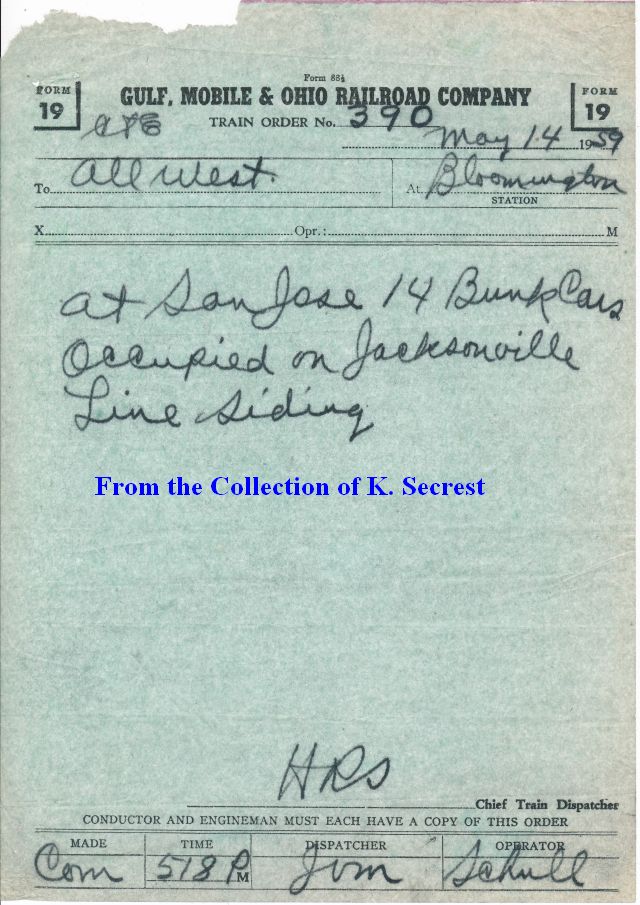 Form 88½
FORM 19
GULF, MOBILE & OHIO RAILROAD COMPANY
FORM 19
TRAIN ORDER No. 390
May 14 1959
To All West.
At Bloomington
STATION
X Opr.: M
at San Jose 14 Bunk Cars
Occupied on Jacksonville
Line Siding
From the Collection of K. Secrest
HRS
Chief Train Dispatcher
CONDUCTOR AND ENGINEMAN MUST EACH HAVE A COPY OF THIS ORDER
MADE TIME DISPATCHER OPERATOR
Com 518 P M Jvm Schull